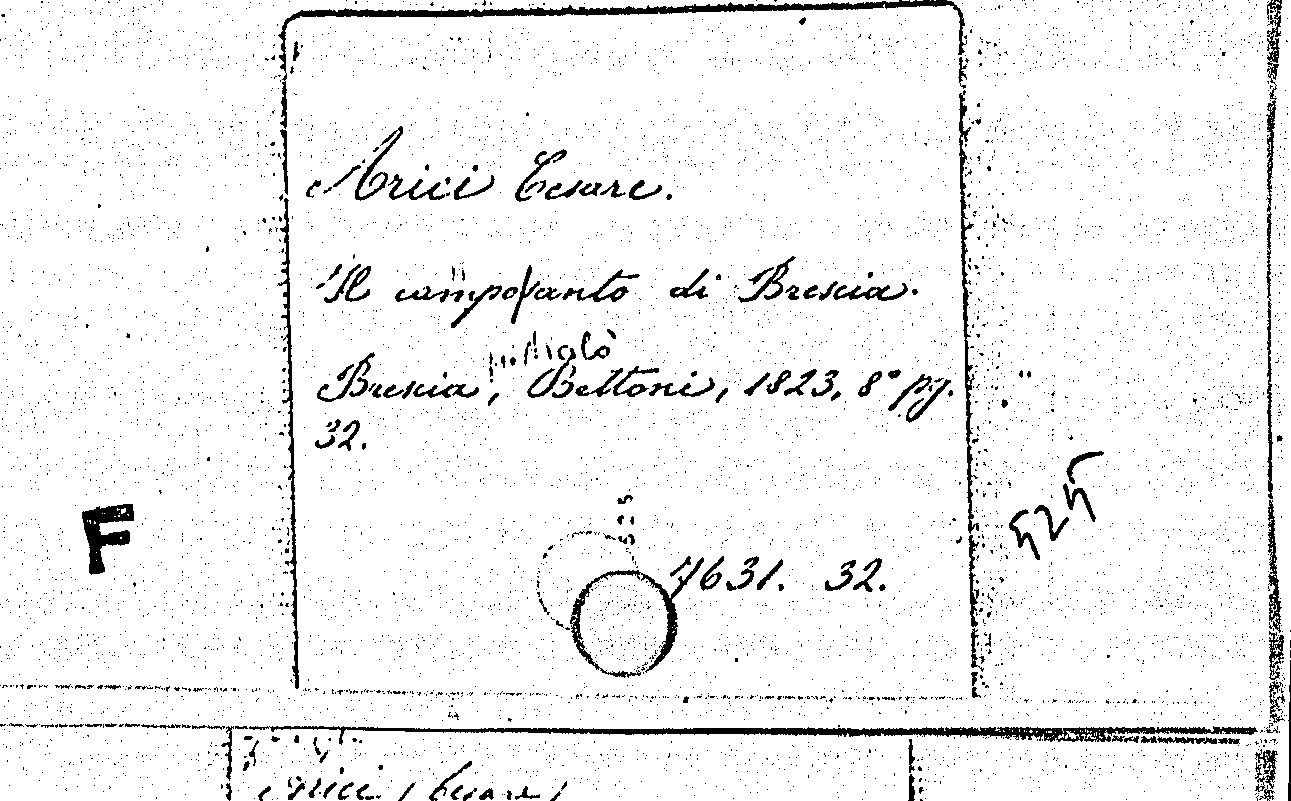 Arici Cesare.
Il camposanto di Brescia.
Nicolò
Brescia, Bettoni, 1823, 8° pg.
32.
525
F
525
4631. 32.
Arici, Cesare,